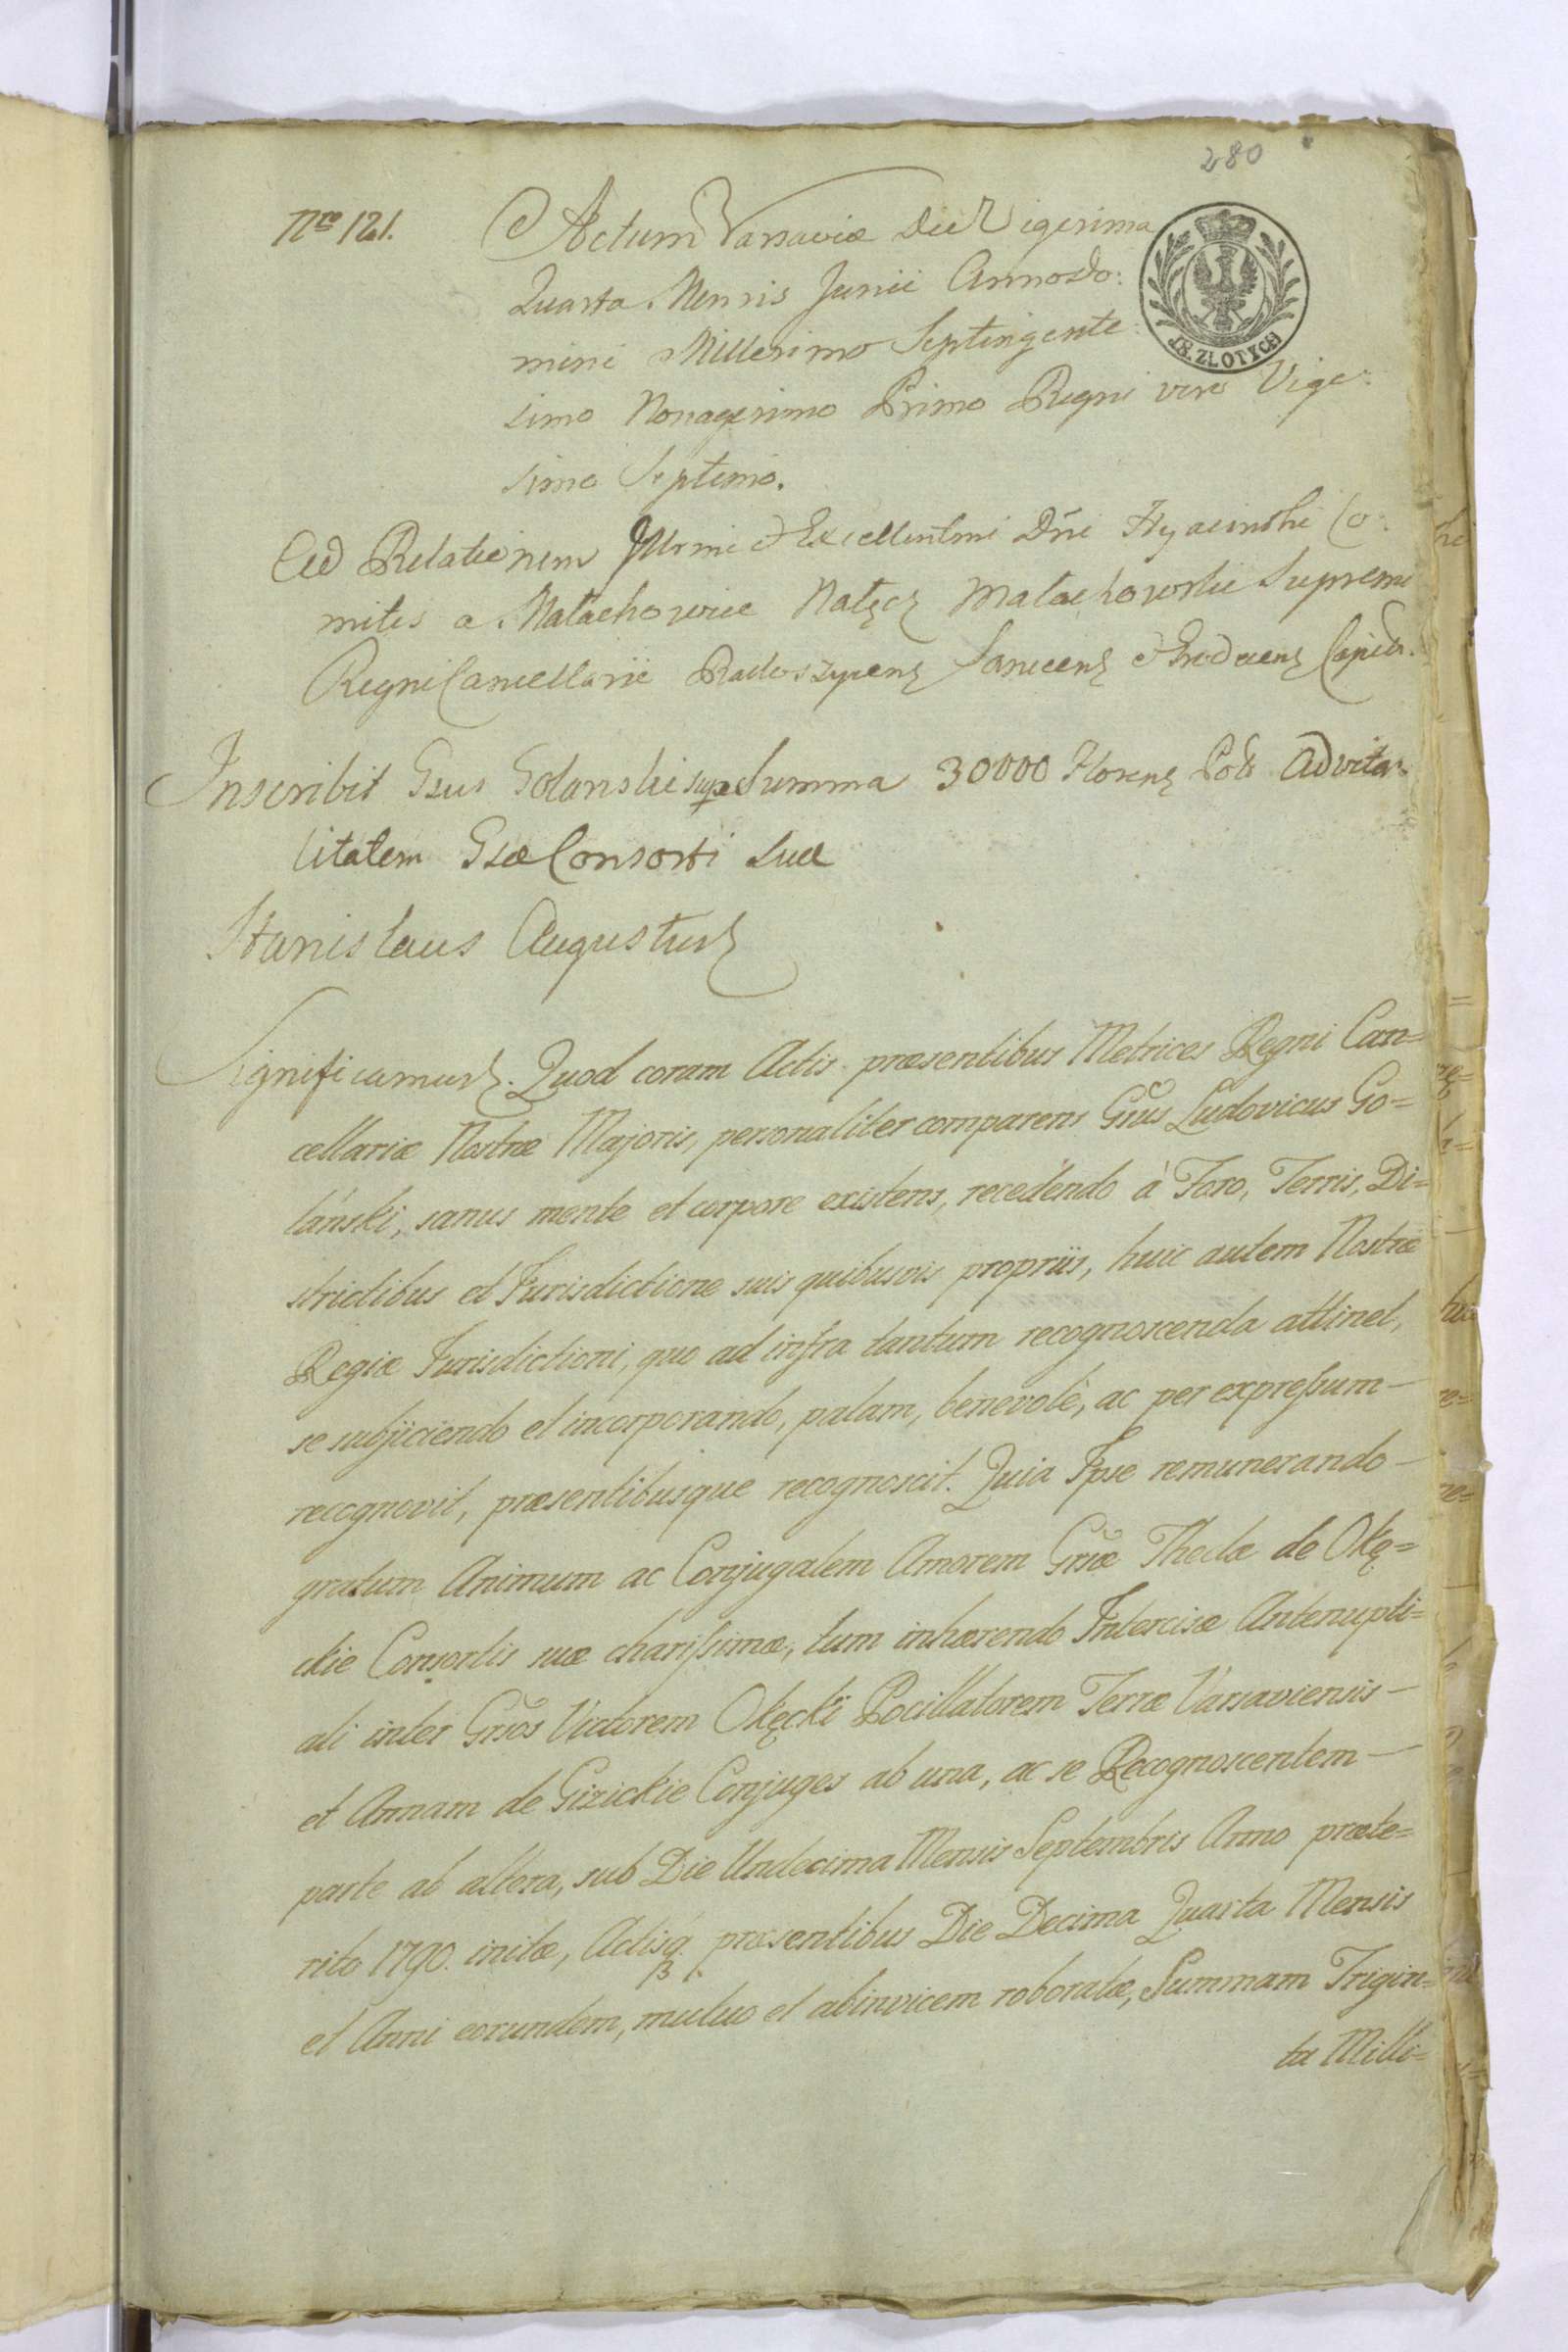 280
Nro 121.
Actum Varsaviæ Die Vigesima
Quarta Mensis Junii Anno Do:
mini Millesimo Septingente:
simo Nonagesimo Primo Regni vero Vige:
simo Septimo.
18. ZŁOTYCH
Ad Relationem Illrmi & Excellentmi Dñi Hyacinthi Co:
mitis a Małachowice Nałęcz Małachowski Supremi
Regni Cancellarii Radoszycens Sanicens & Grodecens Capit.
Inscribit Gsus Golanski sup Summa 30000 Florens Pols Advita:
litatem Gsæ Consorti Suæ
Stanislaus Augustus
Significamus. Quod coram Actis præsentibus Metrices Regni Can=
cellariæ Nostræ Majoris, personaliter comparens Gñus Ludovicus Go=
lánski, sanus mente et corpore existens, recedendo à Foro, Terris, Di=
strictibus et Jurisdictione suis quibusvis propriis, huic autem Nostræ
Regiæ Jurisdictioni, quo ad infra tantum recognoscenda attinet,
se subjiciendo et incorporando, palam, benevolè, ac per expressum—
recognovit, præsentibusque recognoscit. Quia Ipse remunerando—
gratum Animum ac Conjugalem Amorem Gñæ Theclæ de Okę=
ckie Consortis suæ charissimæ, tum inhærendo Intercisæ Antenupti=
ali inter Gños Victorem Okęcki Pocillatorem Terræ Varsaviensis—
et Annam de Gizickie Conjuges ab una, ac se Recognoscentem—
parte ab altera, sub Die Undecima Mensis Septembris Anno præte=
rito 1790. initæ, Actisq. præsentibus Die Decima Quarta Mensis
et Anni eorundem, mutuo et abinvicem roboratæ, Summam Trigin=
ta Milli=